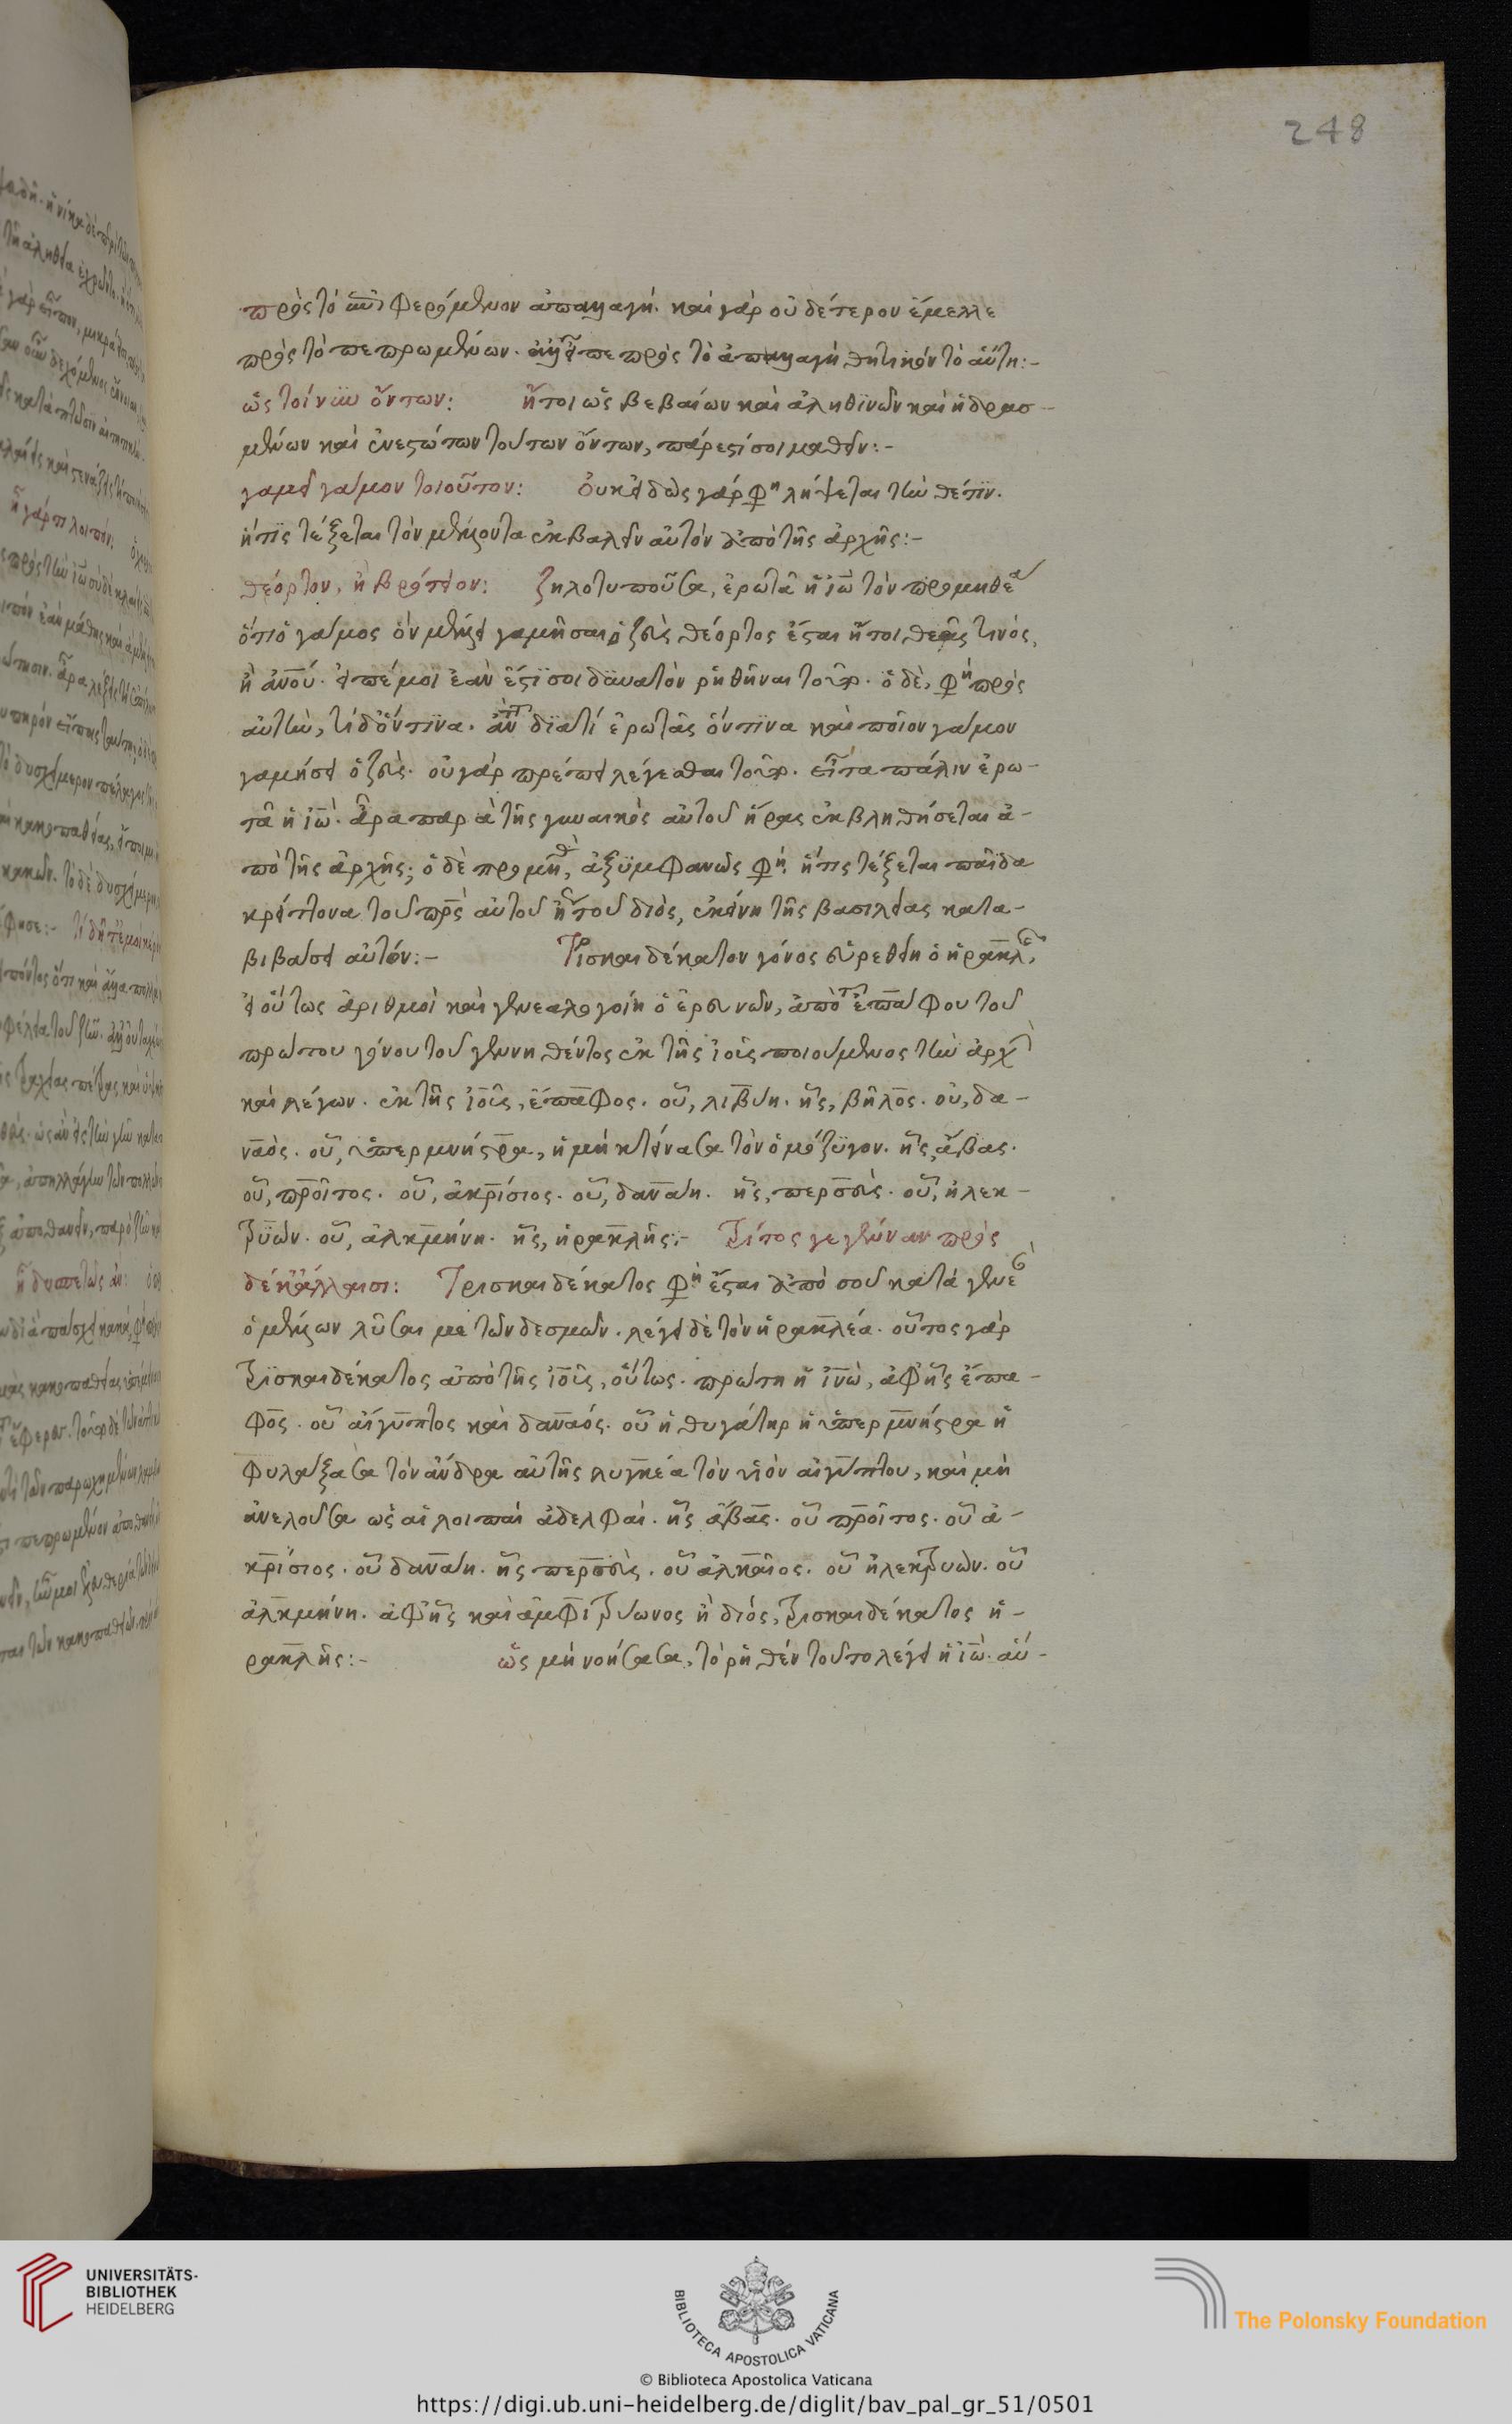 248
πρὸς τὸ ἐπιφερόμενον ἀπαγαγή. καὶ γὰρ οὐδέτερον ἔμελλε
πρὸς τὸ πεπρωμένων. πρὸς τὸ τὸ αὕτη:-
ὡς τοίνυν ὄντων: ἤτοι ὡς βεβαίων καὶ ἀληθινῶν καὶ ἡδρασ-
μένων καὶ ἐνεστώτων τούτων ὄντων, πάρεστί σοι μαθεῖν:-
γαμεῖ γάμον τοιοῦτον: οὐκ εἰδὼς γάρ φη λήψεται τὴν θέτϊν.
ἥτις τέξεται τὸν μείζονα ἐκβαλεῖν αὐτὸν ἀπὸ τῆς ἀρχῆς:-
θέορτον, ἢ βρότειον: ζηλοτυποῦσα, ἐρωτᾷ ἡ ἰὼ τὸν προμηθέα
ὅτι ὁ γάμος ὃν μέλλει γαμῆσαι ὁ ζεὺς θέορτος ἔσται ἤτοι θεᾶς τινός,
ἢ ἀνου. εἰπέ μοϊ ἐὰν ἔστϊ σοι δϋνατὸν ῥηθῆναι τοῦτο. ὁ δέ, φη πρὸς
αὐτὴν, τί δ' ὅντϊνα. ἀντὶ διατί ἐρωτᾷς ὅντϊνα καὶ ποῖον γάμον
γαμήσει ὁ ζεύς. οὐ γὰρ πρέπει λέγεσθαι τοῦτο. εἶτα πάλιν ἐρω-
τᾷ ἡ ἰώ. ἆρα παρὰ τῆς γυναικὸς αὐτοῦ ἥρας ἐκβληθήσεται ἀ-
πὸ τῆς ἀρχῆς; ὁ δὲ προμηθ, ἀξϋμφανῶς φη, ἥτις τέξεται παῖδα
κρείττονα τοῦ πρς αὐτοῦ ἤτοι τοῦ διός, ἐκείνη τῆς βασιλείας κατα-
βιβάσει αὐτόν:- Τρισκαιδέκατον γόνος εὑρέθη ὁ ἡρακλ,
εἰ οὕτως ἀριθμοῖ καὶ γενεαλογοίη ὁ ἐρευνῶν, ἀπὸ τοῦ ἐπάφου τοῦ
πρώτου γόνου τοῦ γεννηθέντος ἐκ τῆς ἰοῦς ποιούμενος τὴν ἀρχ
καὶ λέγων. ἐκ τῆς ἰοῦς, ἔπαφος. οὗ, λιβύη. ἧς, βῆλος. οὗ, δα-
ναός. οὗ, ὑπερμνήστρα, ἡ μὴ κτείνασα τὸν ὁμόζϋγον. ἧς, ἄβας.
οὗ, προῖτος. οὗ, ἀκρίσιος. οὗ, δανάη. ἧς, περσεύς. οὗ, ἠλεκ-
τρϋών. οὗ, ἀλκμήνη. ἧς, ἡρακλῆς:- Τρίτος γε γένναν πρὸς
δέκ' ἄλλαισι: Τρισκαιδέκατος φη ἔσται ἀπὸ σοῦ κατὰ γενε
ὁ μέλλων λῦσαι με τῶν δεσμῶν. λέγει δὲ τὸν ἡρακλέα. οὗτος γὰρ
τρϊσκαιδέκατος ἀπὸ τῆς ἰοῦς, οὕτως. πρώτη ἡ ἰνώ, ἀφ' ἧς ἔπα-
φος. οὗ αἴγυπτος καὶ δαναός. οὗ ἡ θυγάτηρ ἡ ὑπερμνήστρα ἡ
φυλάξασα τὸν ἄνδρα αὐτῆς λυγκέα τὸν υἱὸν αἰγύπτου, καὶ μὴ
ἀνελοῦσα ὡς αἱ λοιπαὶ ἀδελφαί. ἧς ἄβας. οὗ προῖτος. οὗ ἀ-
κρίσιος. οὗ δανάη. ἧς περσεύς. οὗ ἀλκαῖος. οὗ ἠλεκτρυών. οὗ
ἀλκμήνη. ἀφ' ἧς καὶ ἀμφιτρύωνος ἢ διός, τρισκαιδέκατος ἡ-
ρακλῆς:- ὡς μὴ νοήσασα, τὸ ῥηθὲν τοῦτο λέγει ἡ ἰώ. αὕ-
UNIVERSITÄTS-
BIBLIOTHEK
HEIDELBERG
BIBLIOTECA APOSTOLICA VATICANA
The Polonsky Foundation
© Biblioteca Apostolica Vaticana
https://digi.ub.uni-heidelberg.de/diglit/bav_pal_gr_51/0501